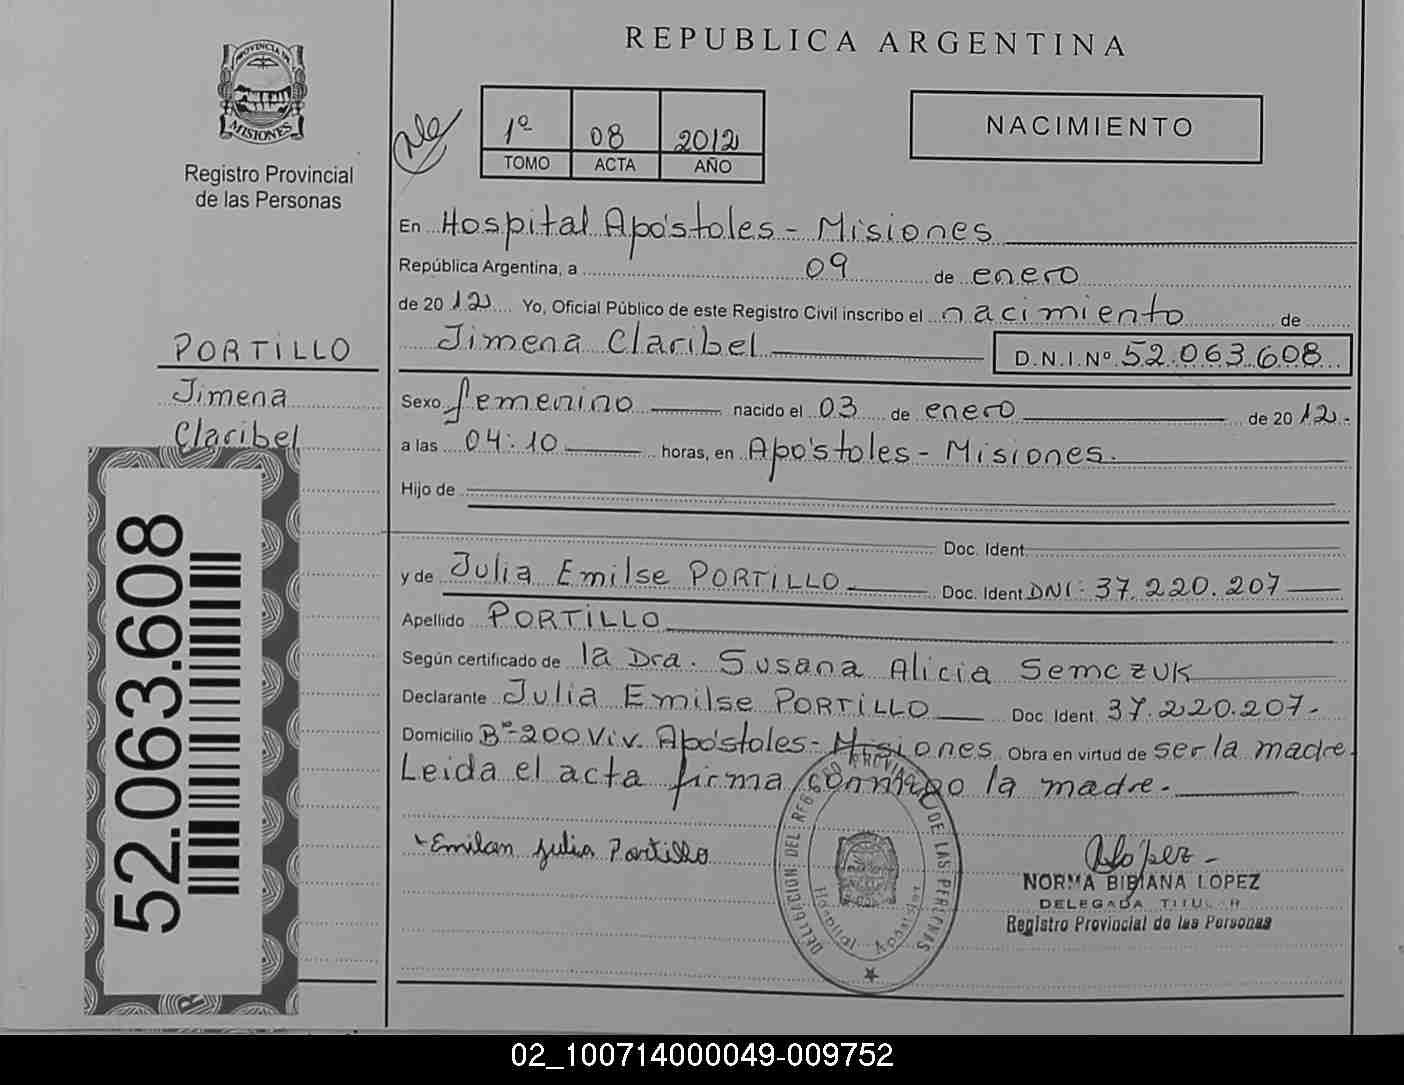 PROVINCIA DE
MISIONES
Registro Provincial
de las Personas
PORTILLO
Jimena
Claribel
52.063.608
REPUBLICA ARGENTINA
1º 08 2012
TOMO ACTA AÑO
NACIMIENTO
En Hospital Apóstoles - Misiones
República Argentina, a 09 de enero
de 2012 Yo, Oficial Público de este Registro Civil inscribo el nacimiento de
Jimena Claribel D.N.I.Nº 52.063.608
Sexo femenino nacido el 03 de enero de 2012.-
a las 04:10 horas, en Apóstoles - Misiones.
Hijo de
Doc. Ident.
y de Julia Emilse PORTILLO Doc. Ident. DNI: 37.220.207
Apellido PORTILLO
Según certificado de la Dra. Susana Alicia Semczuk
Declarante Julia Emilse PORTILLO Doc. Ident. 37.220.207.-
Domicilio Bº-200 Viv. Apóstoles - Misiones Obra en virtud de ser la madre
Leida el acta firma conmigo la madre.-
Julia Portillo
DELEGACION DEL REGISTRO PROVINCIAL DE LAS PERSONAS
Hospital Apóstoles
López
NORMA BIBIANA LOPEZ
DELEGADA TITULAR
Registro Provincial de las Personas
02_100714000049-009752